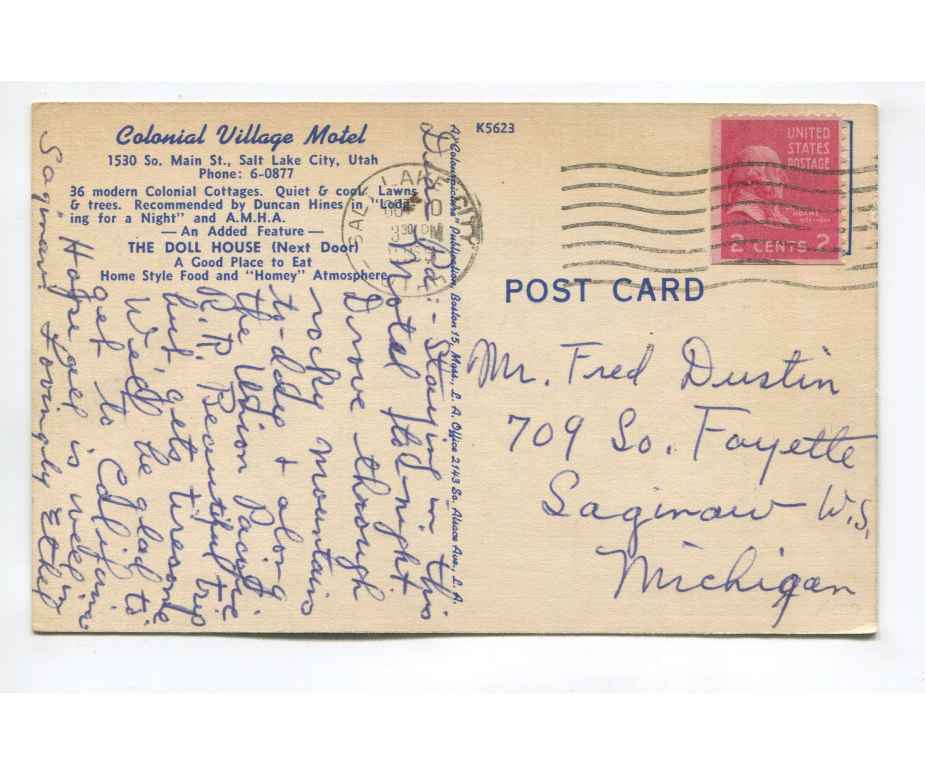 Colonial Village Motel
1530 So. Main St., Salt Lake City, Utah
Phone: 6-0877
36 modern Colonial Cottages. Quiet & cool. Lawns
& trees. Recommended by Duncan Hines in "Lodg-
ing for a Night" and A.M.H.A.
— An Added Feature —
THE DOLL HOUSE (Next Door)
A Good Place to Eat
Home Style Food and "Homey" Atmosphere
Dear Pa:- Staying in this
Motel to-night
Drove through
rocky mountains
to-day & along
the Union Pacific
R.R. Beautiful trip
but gets tiresome
We'll be glad to
get to California.
Hope all is well in
Saginaw.
Lovingly Ethel
A "Colourpicture" Publication, Boston 15, Mass., L. A. Office 2143 So. Ave., L. A.
K5623
SALT LAKE CITY
30 PM
UNITED
STATES
POSTAGE
ADAMS
2 CENTS 2
POST CARD
Mr. Fred Dustin
709 So. Fayette
Saginaw W.S.
Michigan